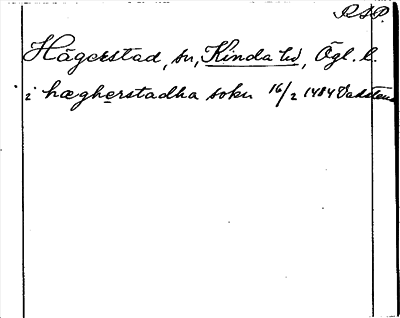 R.A.P.
Hägerstad, sn, Kinda hd, Ögl. l.
i hægherstadha sokn 16/2 1484 Vadstena